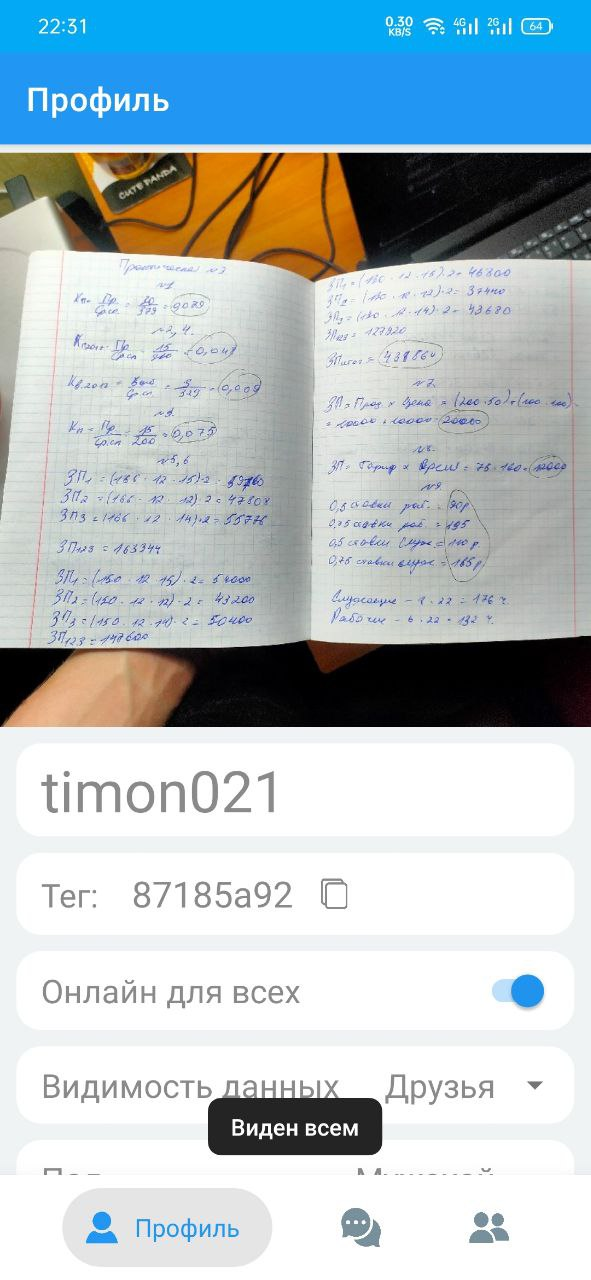 22:31
0.30 KB/S 4G 2G 64
Профиль
CUTE PANDA
Практическая №3
№1
Кп = Пр / Ср.сп =
№2,4.
= 0,04
№3.
Кп = Пр / Ср.сп = 15 / 200 = 0,075
№5,6
ЗП2 = (166 · 12 · 12) · 2 = 47808
ЗП3 = (166 · 12 · 14) · 2 = 55776
ЗП123 = 163344
ЗП1 = (150 · 12 · 15) · 2 = 54000
ЗП2 = (150 · 12 · 12) · 2 = 43200
ЗП3 = (150 · 12 · 14) · 2 = 50400
ЗП123 = 147600
ЗП1 = (130 · 12 · 15) · 2 = 46800
ЗП2 = (130 · 12 · 12) · 2 = 37440
ЗП3 = (130 · 12 · 14) · 2 = 43680
ЗП123 = 127920
ЗПитог = 438864
№7.
ЗП = Прод × Цена = (200 · 50) + (100 · 100)
= 10000 + 10000 = 20000
№8.
ЗП = Тариф × Время = 75 · 160 = 12000
№9
0,5 ставки раб. = 90р
0,75 ставки раб. = 135
0,5 ставки служ. = 110 р
0,75 ставки служ. = 165р
Служащие - 8 · 22 = 176 ч.
Рабочие - 6 · 22 = 132 ч.
timon021
Тег: 87185a92
Онлайн для всех
Видимость данных Друзья
Виден всем
Пол Мужской
Профиль